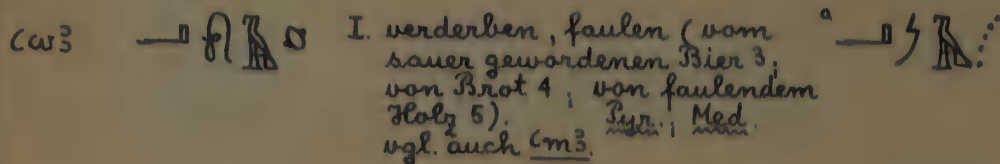 ꜥwꜣ 𓂝𓍯𓄿𓏒 I. verderben, faulen (vom a
sauer gewordenen Bier 3;
von Brot 4; von faulendem
Holz 5). Pyr.; Med.
vgl. auch ꜥmꜣ.